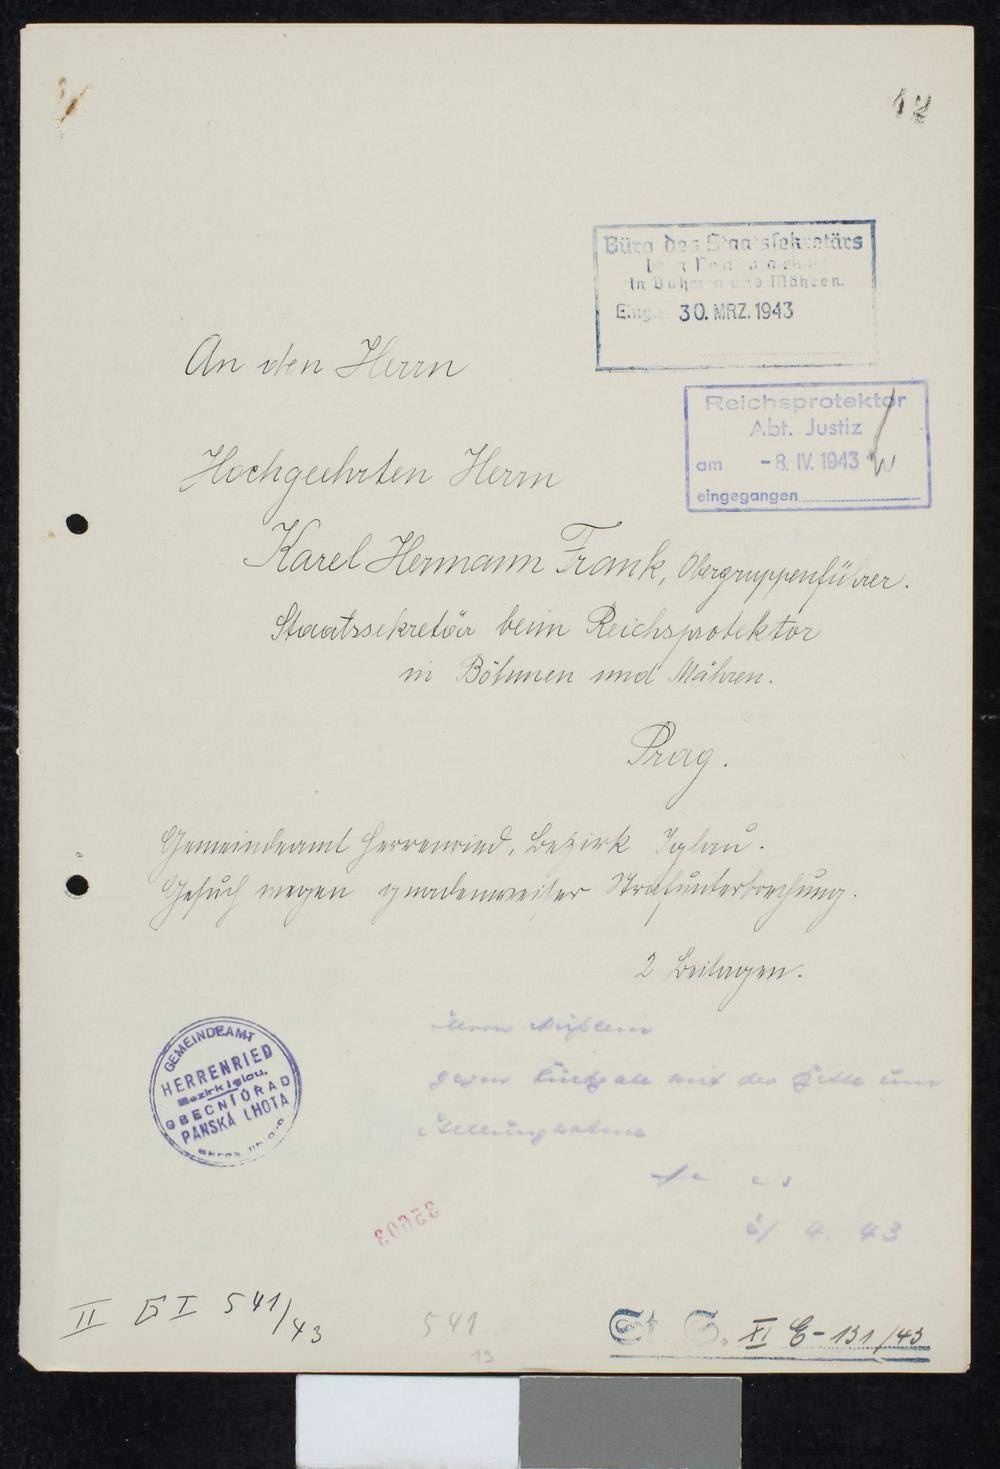 Büro des Staatssekretärs
beim Reichsprotektor
in Böhmen und Mähren.
Eing. 30. MRZ. 1943
An den Herrn
Reichsprotektor
Abt. Justiz
am - 8. IV. 1943
eingegangen
Hochgeehrten Herrn
Karel Hermann Frank, Obergruppenführer.
Staatssekretär beim Reichsprotektor
in Böhmen und Mähren.
Prag.
Gemeindeamt Herrenried, Bezirk Iglau.
Gesuch wegen gnadenweiser Strafunterbrechung.
2 Beilagen.
GEMEINDEAMT
HERRENRIED
Bezirk Iglau.
OBECNÍ ÚŘAD
PANSKÁ LHOTA
Herrn
gegen Rückgabe mit der Bitte um
Stellungnahme
4. 43
32003
II G I 541/43
541
St. S. XI C - 131/43